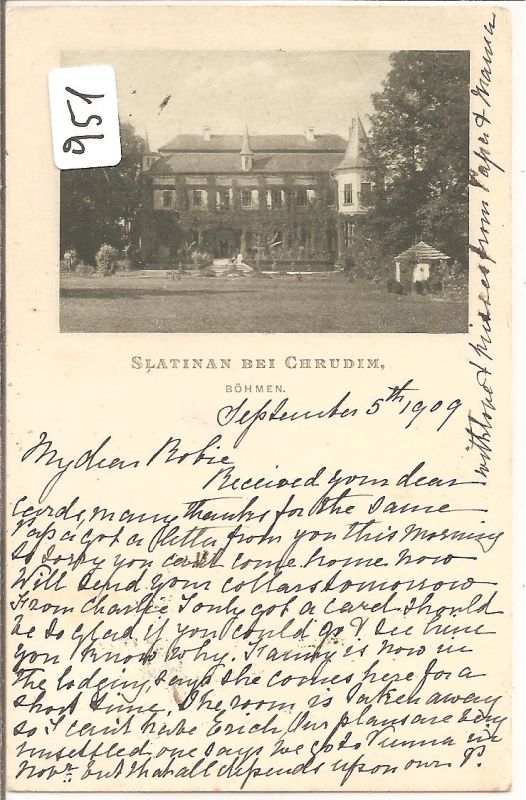 951
SLATINAN BEI CHRUDIM,
BÖHMEN.
September 5th 1909
My dear Robie
Received your dear
cards, many thanks for the same
Papa got a letter from you this morning
so sorry you can't come home now
Will send your collars tomorrow
From Charlie I only got a card should
be so glad if you could go & see him
you know why. Fanny is now in
the lodging, says she comes here for a
short time. The room is taken away
so I can't have Erich, Our plans are very
unsettled one says we go to Vienna in
Novr but that all depends upon own P.
with love & kisses from Papa & Mama